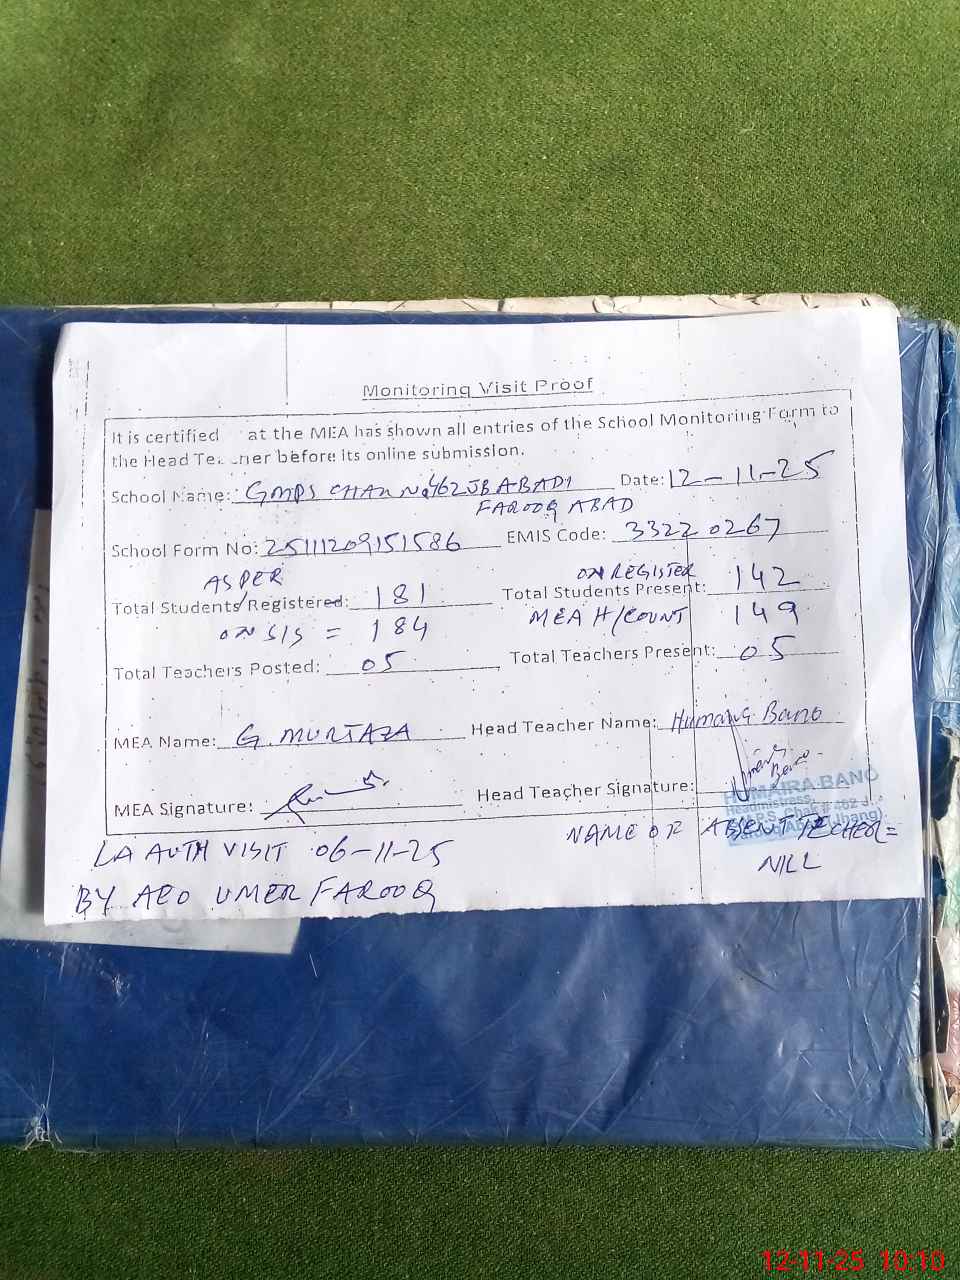 Monitoring Visit Proof
It is certified at the MEA has shown all entries of the School Monitoring Form to
the Head Teacher before its online submission.
School Name: GMPS CHAK No 462 JB ABADI Date: 12-11-25
FAROOQ ABAD
School Form No: 25111209151586 EMIS Code: 33220267
AS PER ON REGISTER
Total Students/Registered: 181 Total Students Present: 142
ON SIS = 184 MEA H/COUNT 149
Total Teachers Posted: 05 Total Teachers Present: 05
MEA Name: G. MURTAZA Head Teacher Name: Humaira Bano
MEA Signature: Head Teacher Signature:
HUMAIRA BANO
Headmistress
462 J
(Jhang)
NAME OF ABSENT TECHER =
NILL
LA AUTH VISIT 06-11-25
BY AEO UMER FAROOQ
12-11-25 10:10